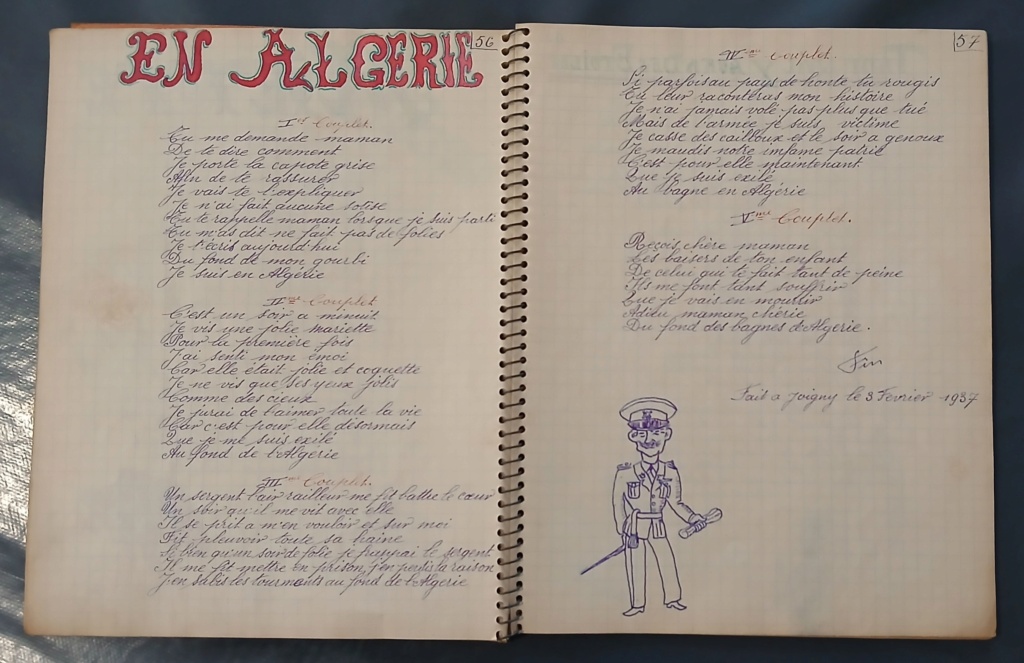 EN ALGERIE
56
Ier Couplet.
Tu me demande maman
De te dire comment
Je porte la capote grise
Afin de te rassurer
Je vais te l'expliquer
Je n'ai fait aucune sotise
Tu te rappelle maman lorsque je suis parti
Tu m'as dit ne fait pas de folies
Je t'écris aujourd'hui
Du fond de mon gourbi
Je suis en Algérie
IIme Couplet
C'est un soir a minuit
Je vis une jolie mariette
Pour la première fois
J'ai senti mon émoi
Car elle était jolie et coquette
Je ne vis que ses yeux jolis
Comme des cieux
Je jurai de l'aimer toute la vie
Car c'est pour elle désormais
Que je me suis exilé
Au fond de l'Algérie
IIIme Couplet.
Un sergent l'air railleur me fit battre le cœur
Un soir qu'il me vit avec elle
Il se prit a m'en vouloir et sur moi
Fit pleuvoir toute sa haine
Si bien qu'un soir de folie je frappai le sergent
Il me fit mettre en prison, j'en perdis la raison
J'en subis les tourments au fond de l'Algerie
57
IVme Couplet.
Si parfois au pays de honte tu rougis
Tu leur raconteras mon histoire
Je n'ai jamais volé pas plus que tué
Mais de l'armée je suis victime
Je casse des cailloux et le soir a genoux
Je maudis notre infame patrie
C'est pour elle maintenant
Que je suis exilé
Au bagne en Algérie
Vme Couplet.
Reçois chère maman
Les baisers de ton enfant
De celui qui te fait tant de peine
Ils me font tant souffrir
Que je vais en mourrir
Adieu maman chérie
Du fond des bagnes d'Algerie.
Fin
Fait a Joigny le 3 Fevrier 1937